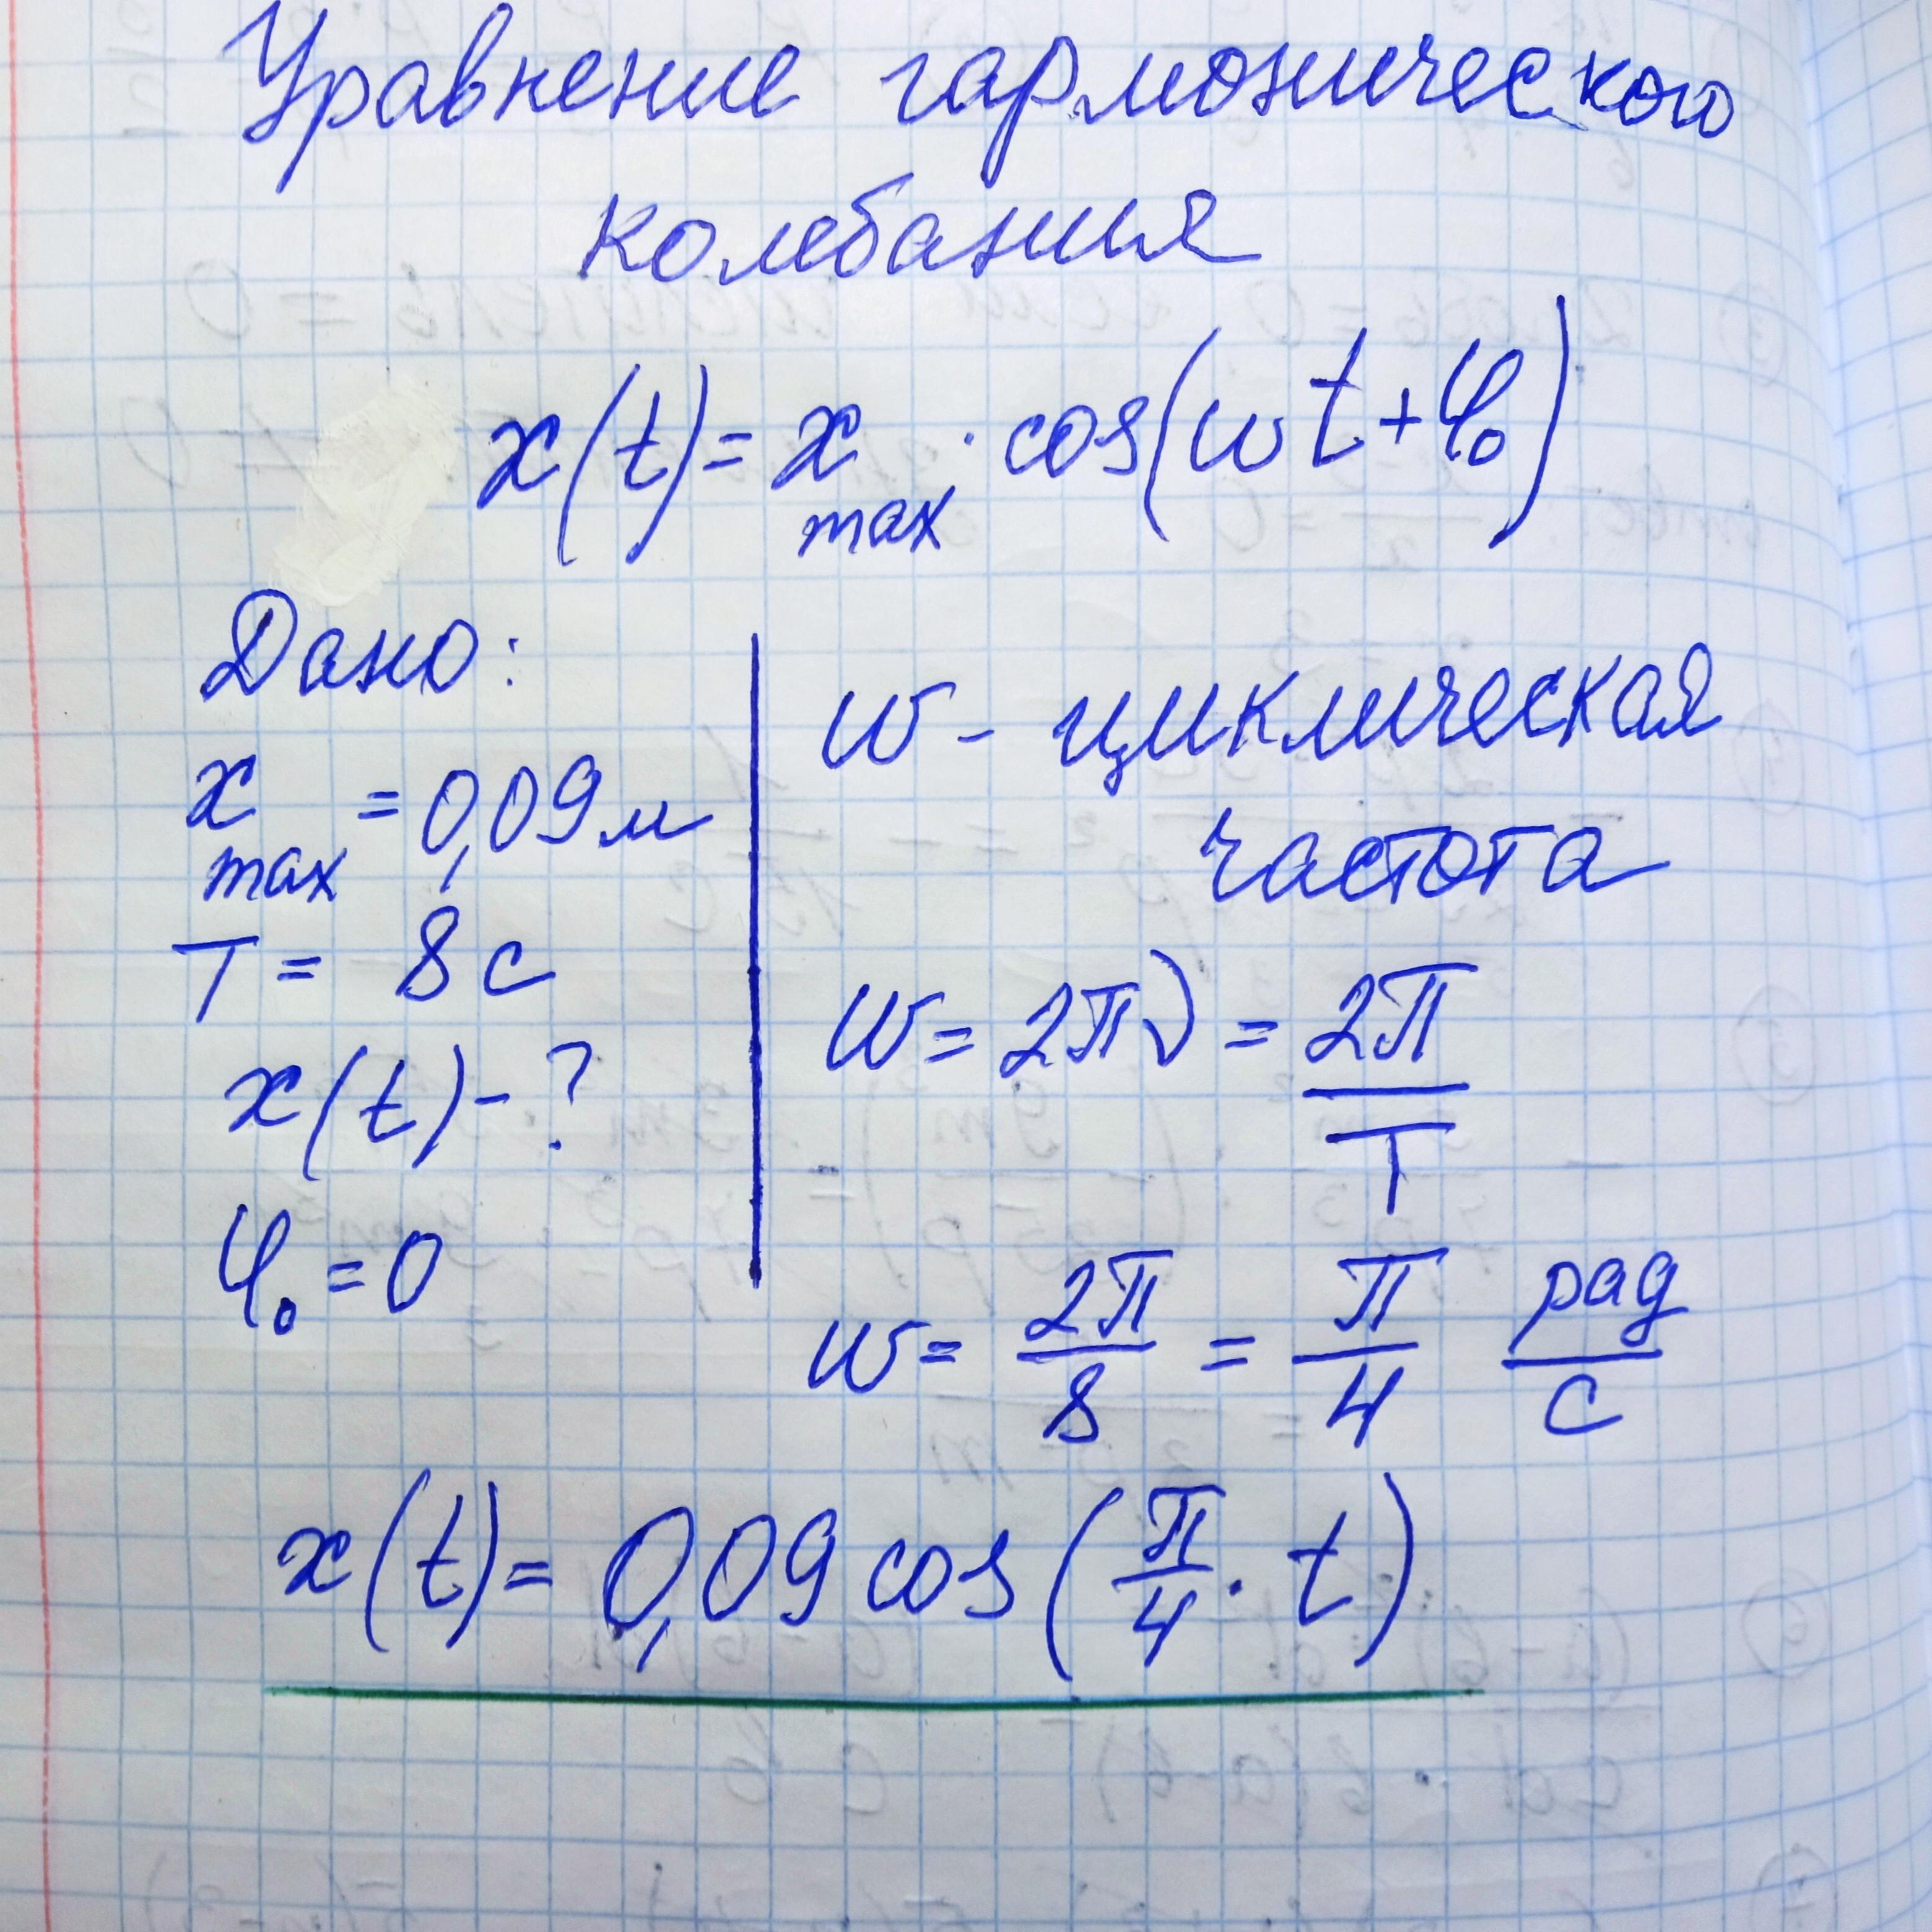 Уравнение гармонического
колебания
x(t) = x_max · cos(ωt + φ₀)
Дано:
x_max = 0,09 м
T = 8 с
x(t) - ?
φ₀ = 0
ω - циклическая
частота
ω = 2πν = 2π/T
ω = 2π/8 = π/4 рад/с
x(t) = 0,09 cos(π/4 · t)